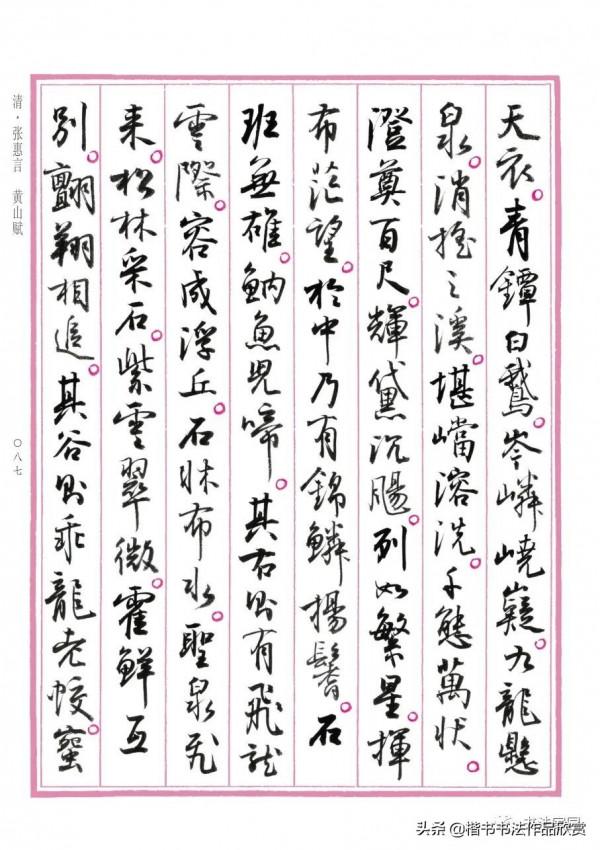 天衣。青鐔白鵞。岑嶙嶢嶷。九龍懸
泉。消搖之溪。堪嵣溶洗。千態萬狀。
澄奠百尺。輝黛沉腸。列如繁星。揮
布茫望。於中乃有錦鱗揚鬐。石
班無雄。魶魚兒啼。其右則有飛龍
雲際。容成浮丘。石牀布水。聖泉
来。松林采石。紫雲翠微。霍鮮互
别。翔相追。其谷則乖龍老蛟。
清·张惠言 黄山赋
〇八七
头条@楷书书法作品欣赏